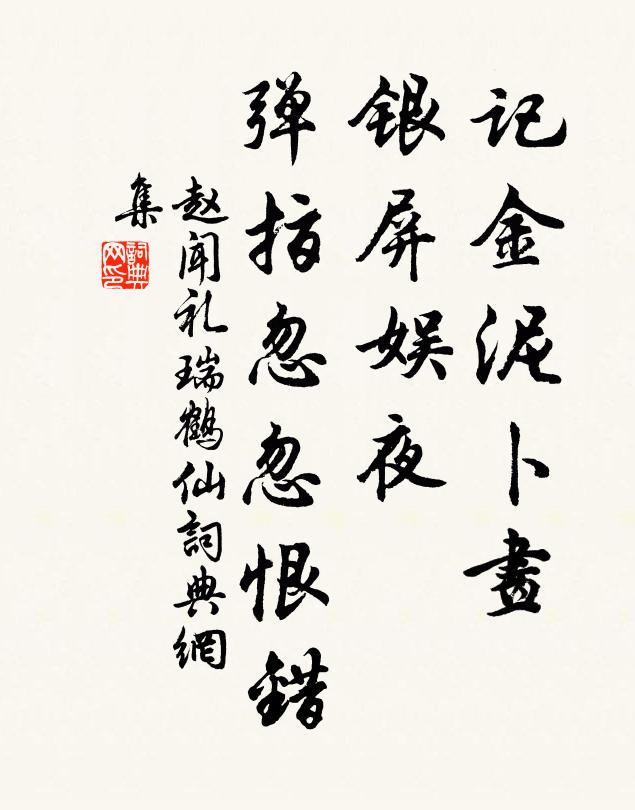 记金泥卜晝
银屏娱夜
弹指忽忽恨錯
赵闻礼瑞鹤仙詞典網
集
詞典
网印